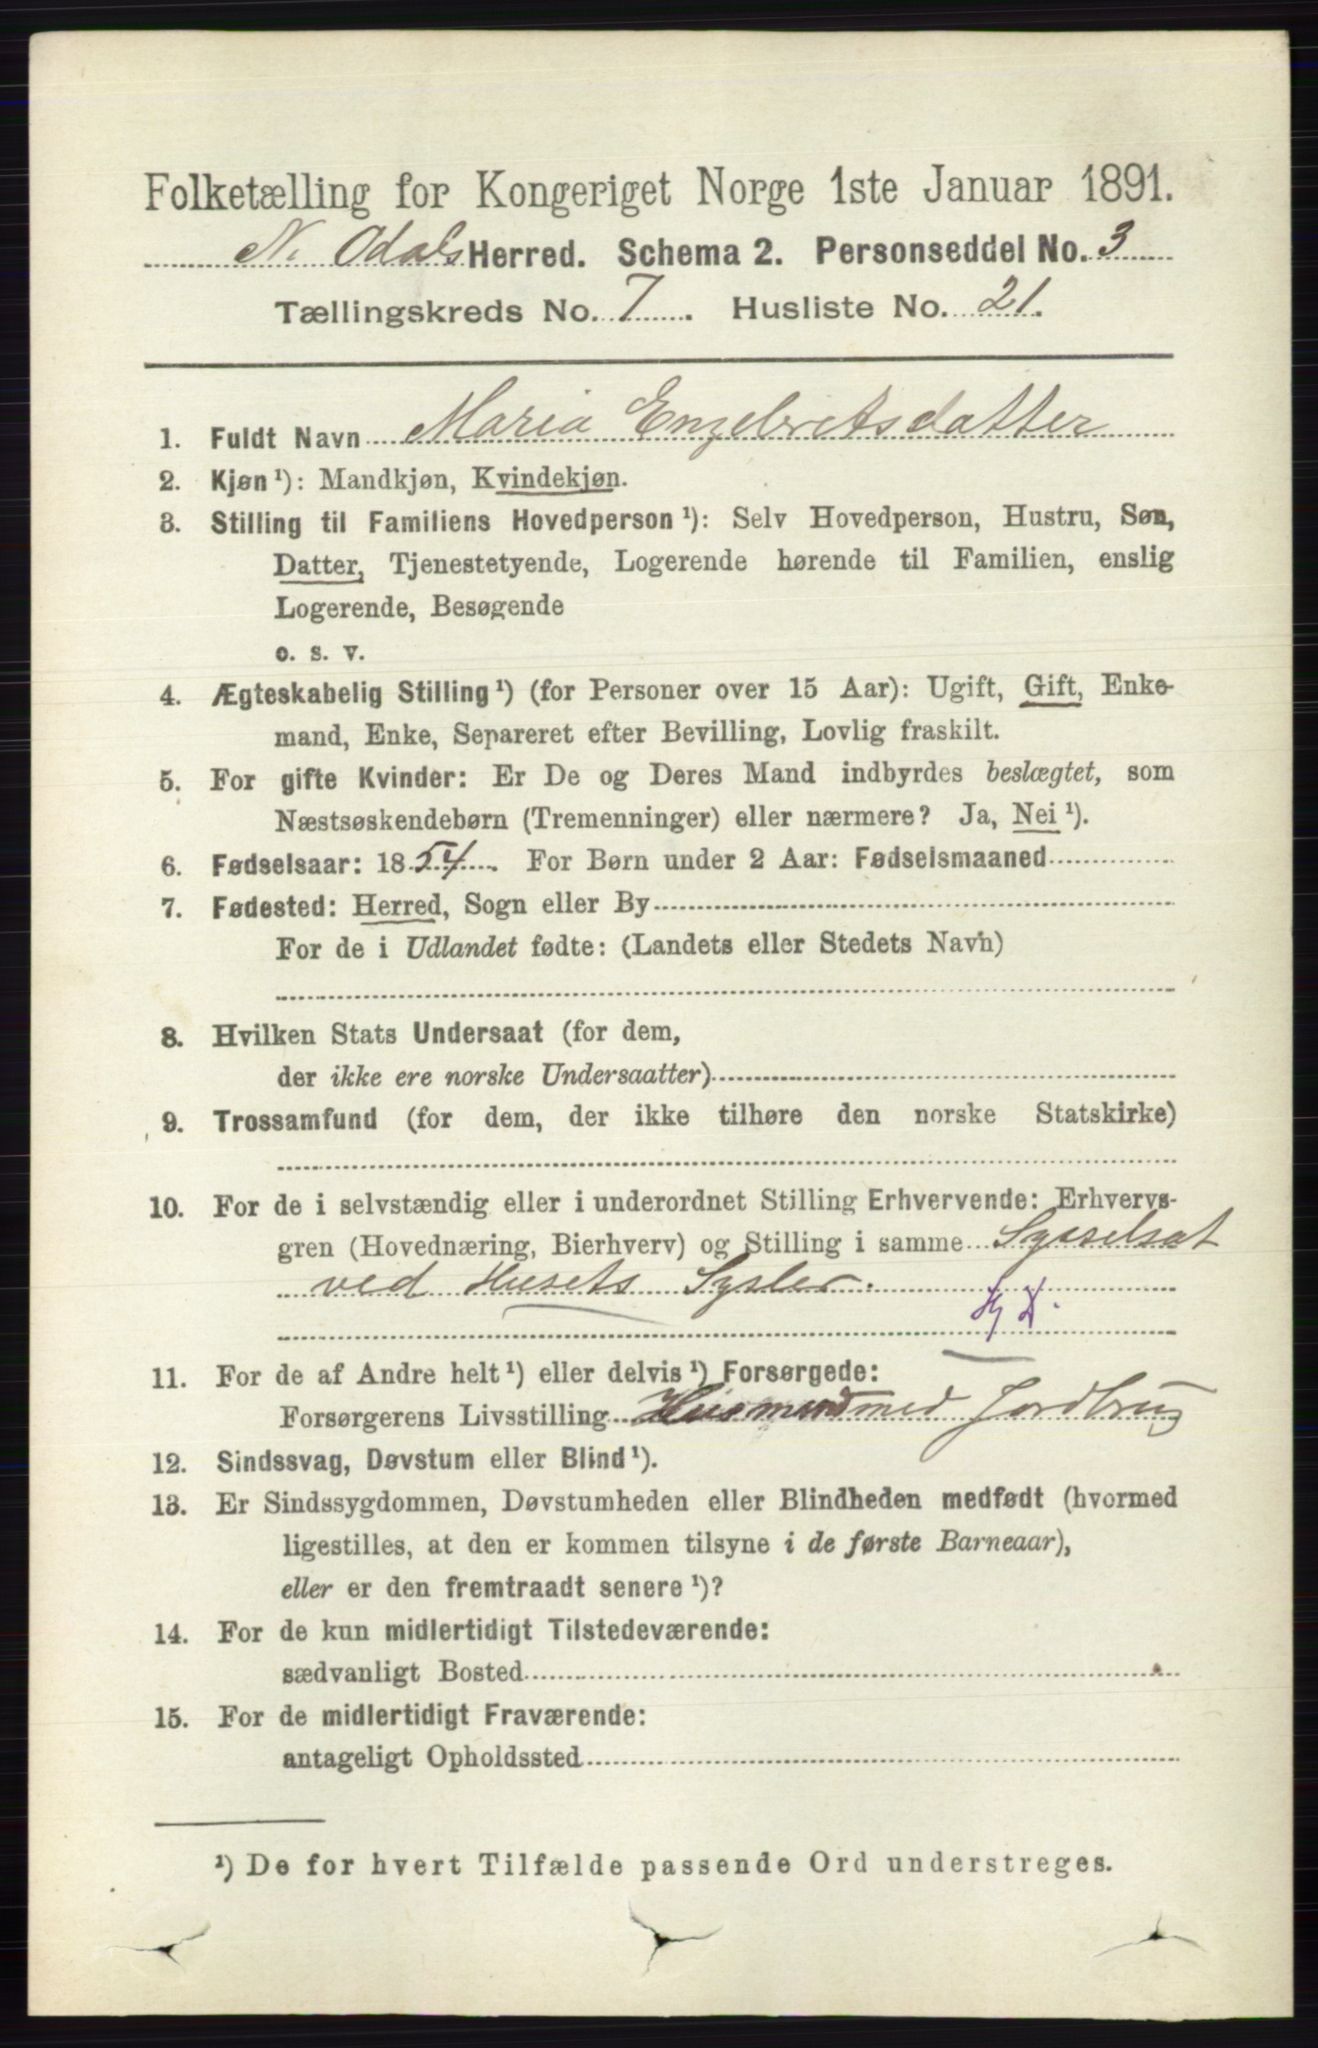 Folketælling for Kongeriget Norge 1ste Januar 1891.
N. Odals Herred. Schema 2. Personseddel No. 3
Tællingskreds No. 7. Husliste No. 21.
1. Fuldt Navn Maria Engebretsdatter
2. Kjøn ¹): Mandkjøn, Kvindekjøn.
3. Stilling til Familiens Hovedperson ¹): Selv Hovedperson, Hustru, Søn,
Datter, Tjenestetyende, Logerende hørende til Familien, enslig
Logerende, Besøgende
o. s. v.
4. Ægteskabelig Stilling ¹) (for Personer over 15 Aar): Ugift, Gift, Enke-
mand, Enke, Separeret efter Bevilling, Lovlig fraskilt.
5. For gifte Kvinder: Er De og Deres Mand indbyrdes beslægtet, som
Næstsøskendebørn (Tremenninger) eller nærmere? Ja, Nei ¹).
6. Fødselsaar: 1854. For Børn under 2 Aar: Fødselsmaaned
7. Fødested: Herred, Sogn eller By
For de i Udlandet fødte: (Landets eller Stedets Navn)
8. Hvilken Stats Undersaat (for dem,
der ikke ere norske Undersaatter)
9. Trossamfund (for dem, der ikke tilhøre den norske Statskirke)
10. For de i selvstændig eller i underordnet Stilling Erhvervende: Erhvervs-
gren (Hovednæring, Bierhverv) og Stilling i samme Sysselsat
ved Husets Sysler.
11. For de af Andre helt ¹) eller delvis ¹) Forsørgede:
Forsørgerens Livsstilling Husmand med Jordbrug
12. Sindssvag, Døvstum eller Blind ¹).
13. Er Sindssygdommen, Døvstumheden eller Blindheden medfødt (hvormed
ligestilles, at den er kommen tilsyne i de første Barneaar),
eller er den fremtraadt senere ¹)?
14. For de kun midlertidigt Tilstedeværende:
sædvanligt Bosted
15. For de midlertidigt Fraværende:
antageligt Opholdssted
¹) De for hvert Tilfælde passende Ord understreges.